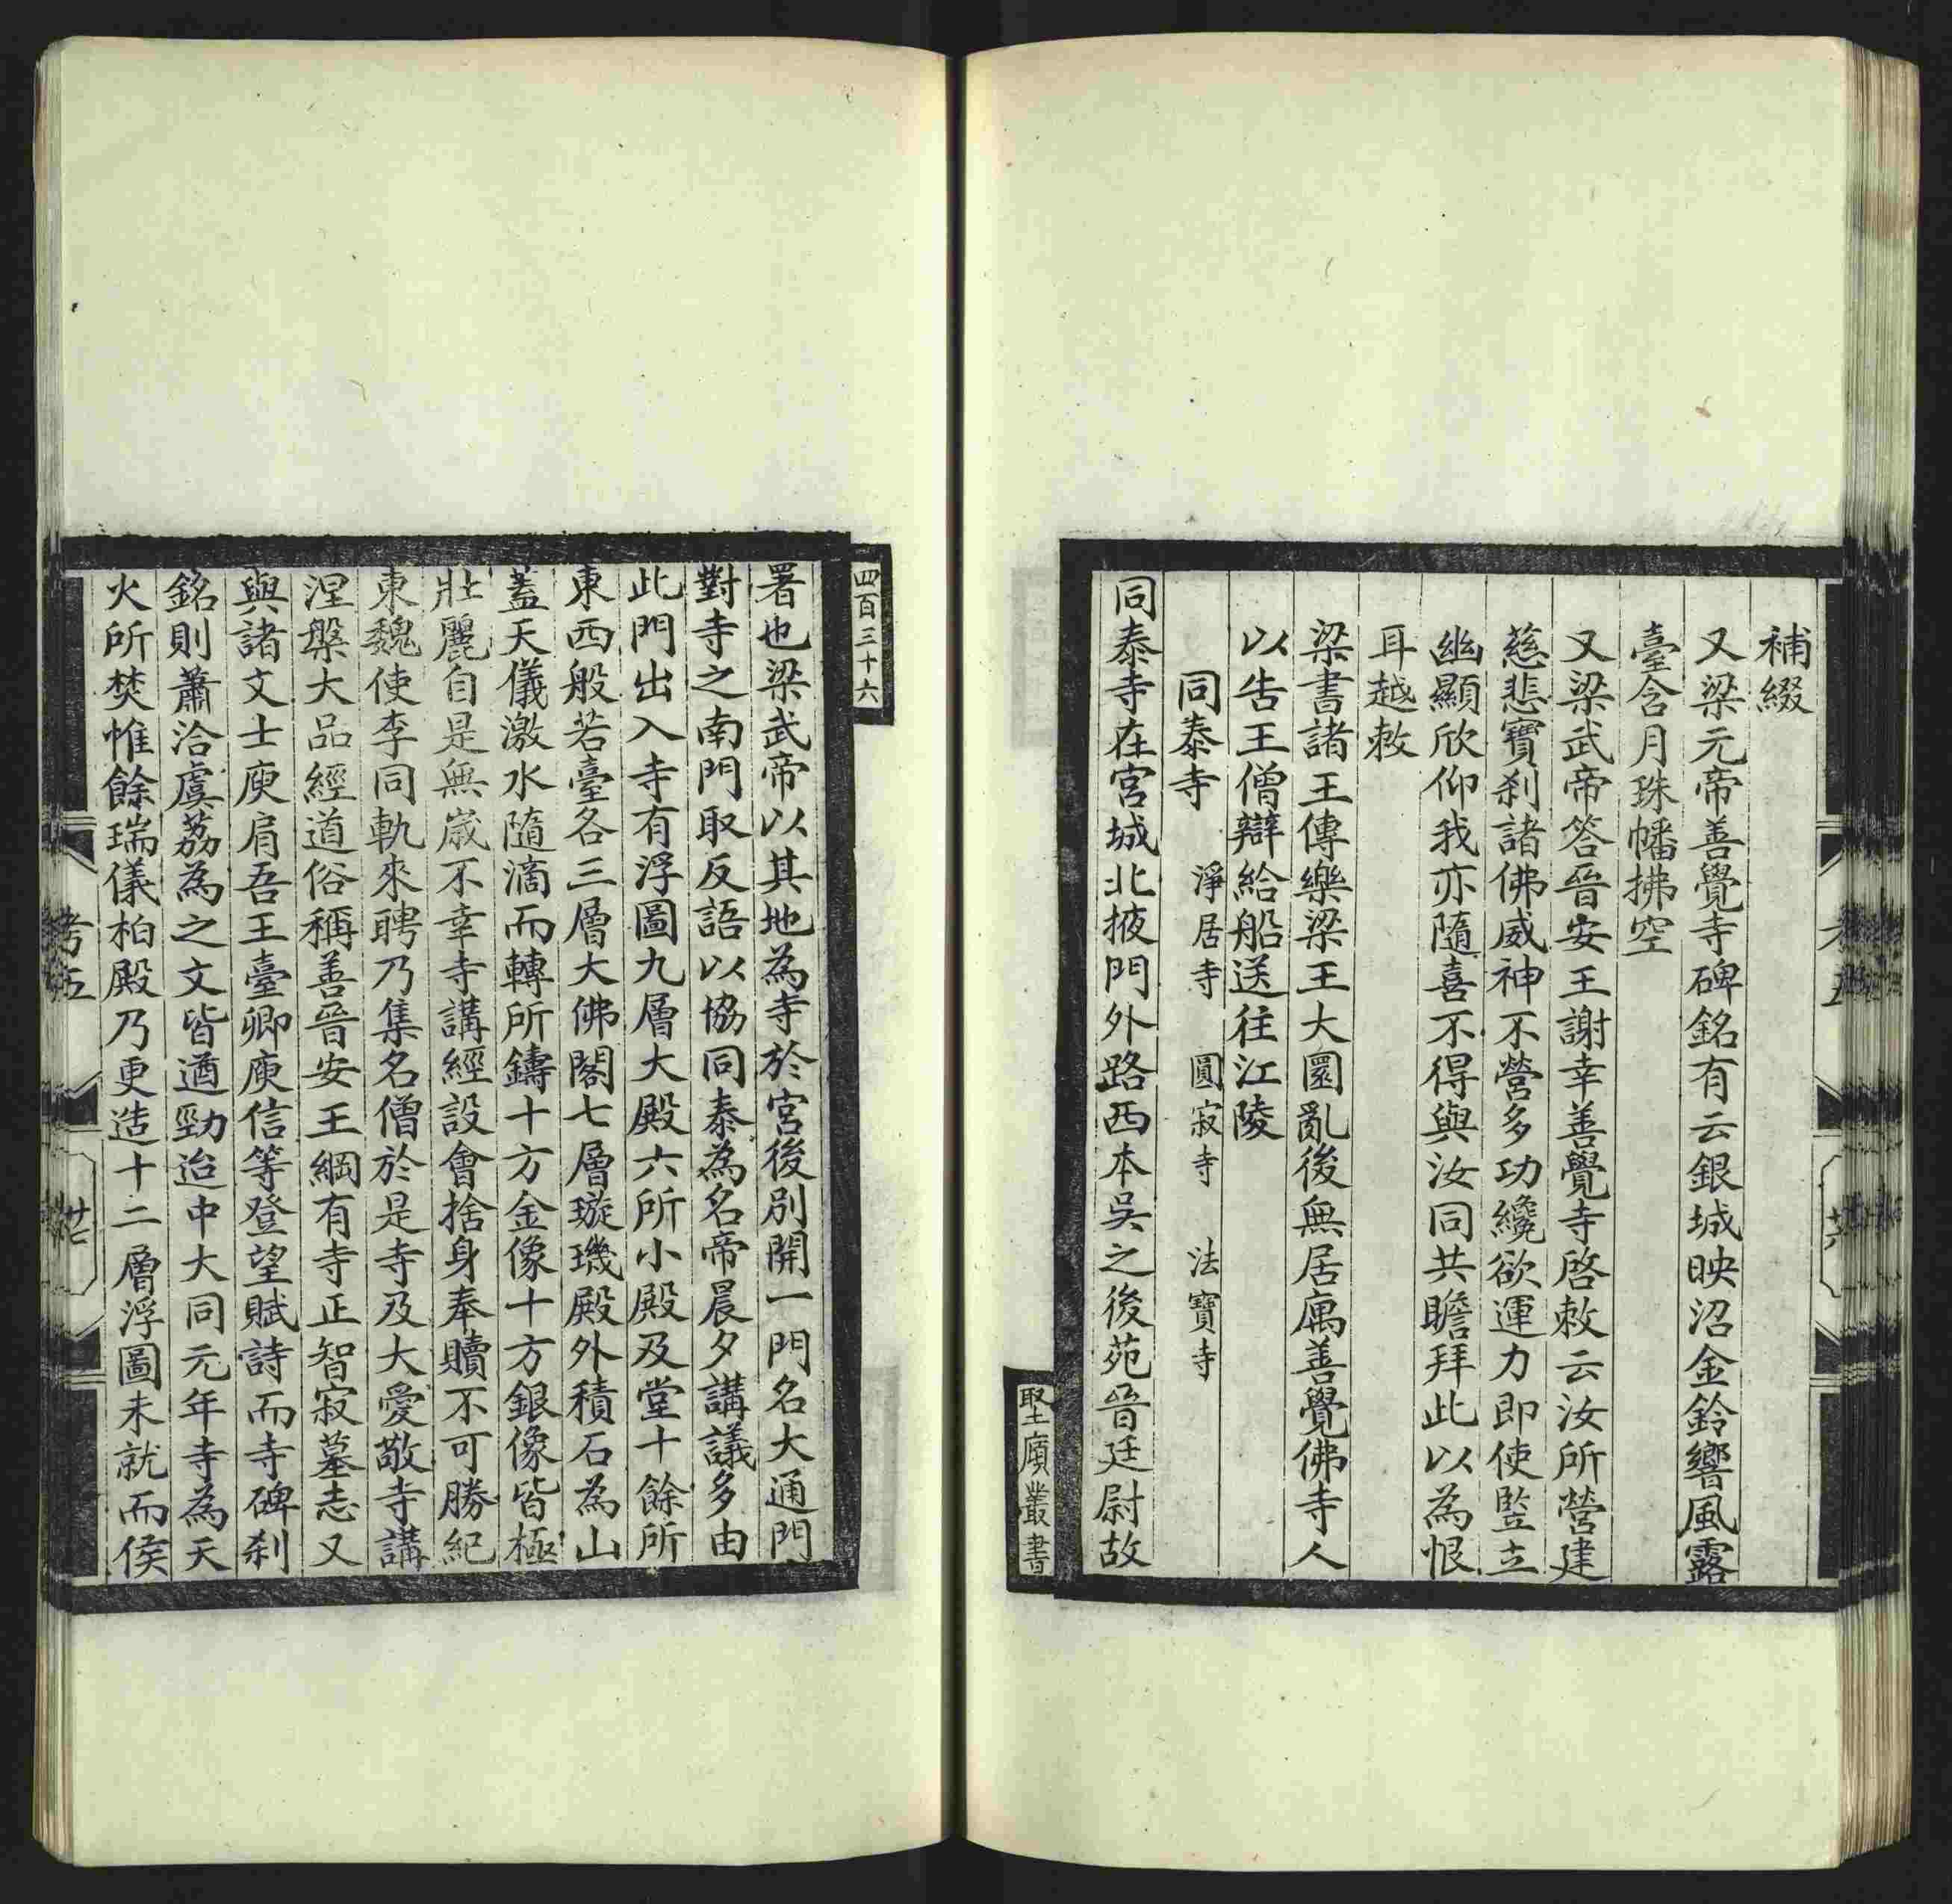 補綴
又梁元帝善覺寺碑銘有云銀城映沼金鈴響風露
臺含月珠幡拂空
又梁武帝答晉安王謝幸善覺寺啓敕云汝所營建
慈悲寶刹諸佛威神不營多功纔欲運力即使豎立
幽顯欣仰我亦隨喜不得與汝同共瞻拜此以為恨
耳越敕
梁書諸王傳樂梁王大圜亂後無居寓善覺佛寺人
以告王僧辯給船送往江陵
同泰寺　淨居寺　圓寂寺　法寶寺
同泰寺在宮城北掖門外路西本吳之後苑晉廷尉故
堅瓠叢書
四百三十六
署也梁武帝以其地為寺於宮後別開一門名大通門
對寺之南門取反語以協同泰為名帝晨夕講議多由
此門出入寺有浮圖九層大殿六所小殿及堂十餘所
東西般若臺各三層大佛閣七層璇璣殿外積石為山
蓋天儀激水隨滴而轉所鑄十方金像十方銀像皆極
壯麗自是無歲不幸寺講經設會捨身奉贖不可勝紀
東魏使李同軌來聘乃集名僧於是寺及大愛敬寺講
涅槃大品經道俗稱善晉安王綱有寺正智寂墓志又
與諸文士庾肩吾王臺卿庾信等登望賦詩而寺碑刹
銘則蕭洽虞荔為之文皆遒勁迨中大同元年寺為天
火所焚惟餘瑞儀柏殿乃更造十二層浮圖未就而侯
考五
廿七